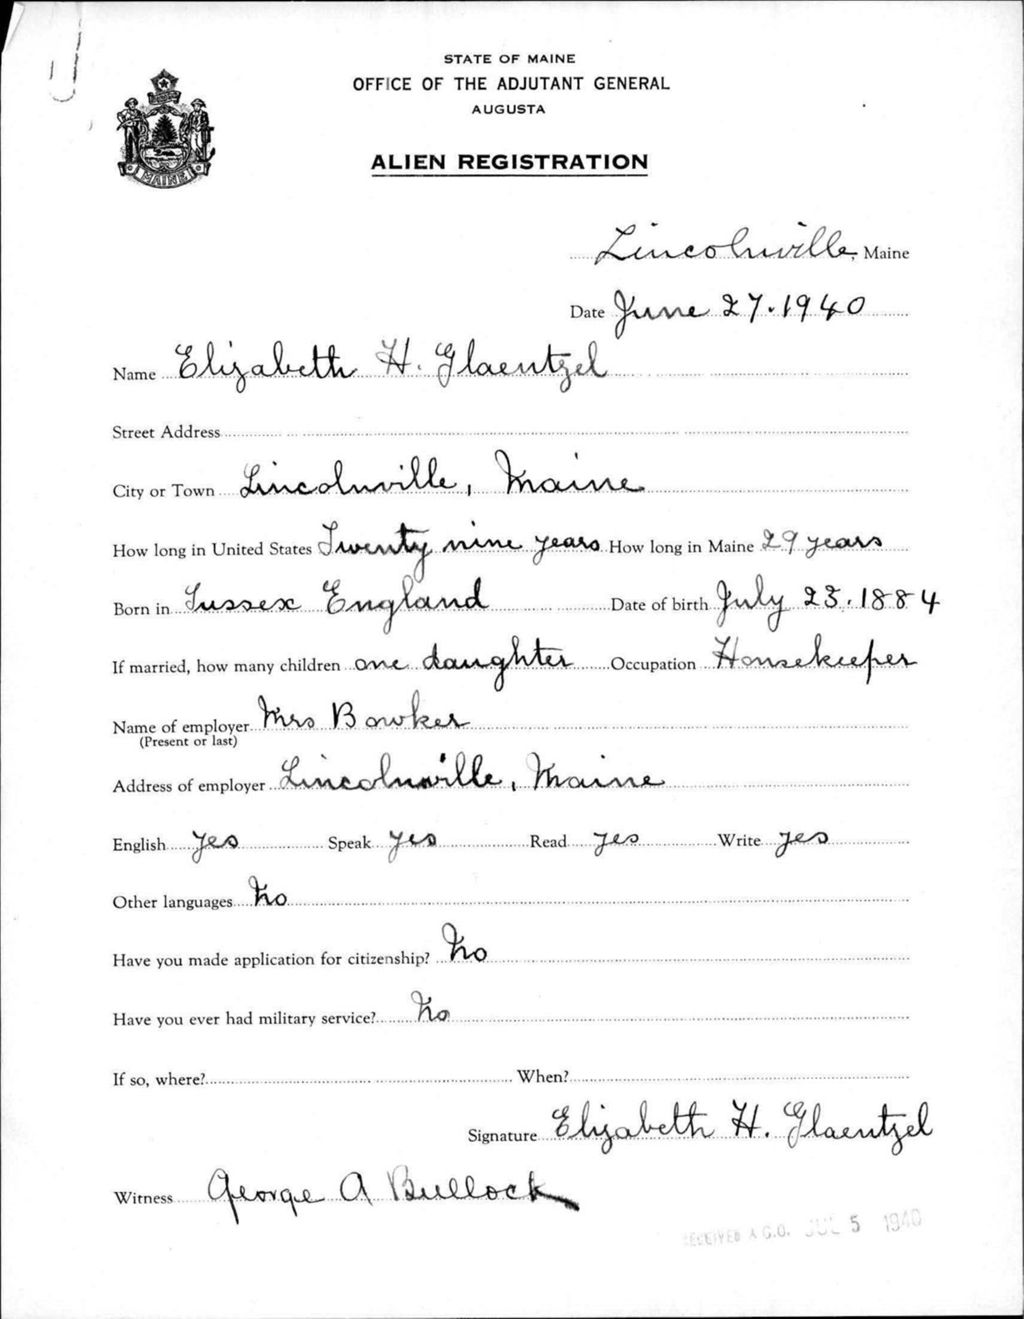 STATE OF MAINE
OFFICE OF THE ADJUTANT GENERAL
AUGUSTA
MAINE
ALIEN REGISTRATION
Lincolnville, Maine
Date June 27. 1940
Name Elizabeth H. Glaentzel
Street Address
City or Town Lincolnville, Maine
How long in United States Twenty nine years How long in Maine 29 years
Born in Sussex England Date of birth July 23. 1884
If married, how many children one daughter Occupation Housekeeper
Name of employer Mrs Bowker
(Present or last)
Address of employer Lincolnville, Maine
English yes Speak yes Read yes Write yes
Other languages No
Have you made application for citizenship? No
Have you ever had military service? No
If so, where? When?
Signature Elizabeth H. Glaentzel
Witness George A Bullock
RECEIVED A.G.O. JUL 5 1940